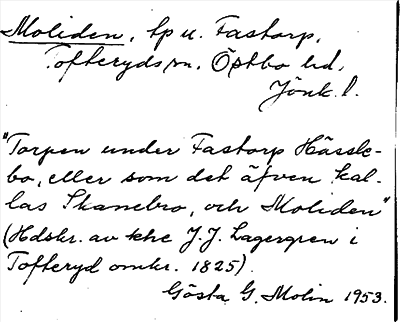 Moliden, tp u. Fastorp,
Tofteryds sn, Östbo hd,
Jönk. l.
"Torpen under Fastorp Hässle-
bo, eller som det äfven kal-
las Skanebro, och Moliden"
(Hdskr. av khe J. J. Lagergren i
Tofteryd omkr. 1825).
Gösta G. Molin 1953.